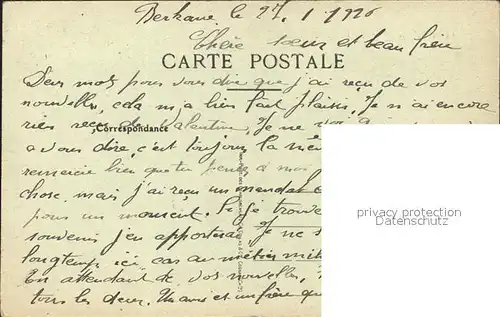 Berkane le 27. 1. 1926
Chère sœur et beau frère
CARTE POSTALE
Deux mots pour vous dire que j'ai reçu de vos
nouvelles, cela m'a bien fait plaisir, Je n'ai encore
rien reçu de Valentine, Je ne
Correspondance
a vous dire, c'est toujours la
remercie bien que tu penses à moi
chose, mais j'ai reçu un mandat
pour un moment. Si Je trouve
souvenir j'en apporterai Je ne
longtemps ici, car au métier
En attendant de vos nouvelles,
tous les deux. Un ami et un frère
privacy protection
Datenschutz